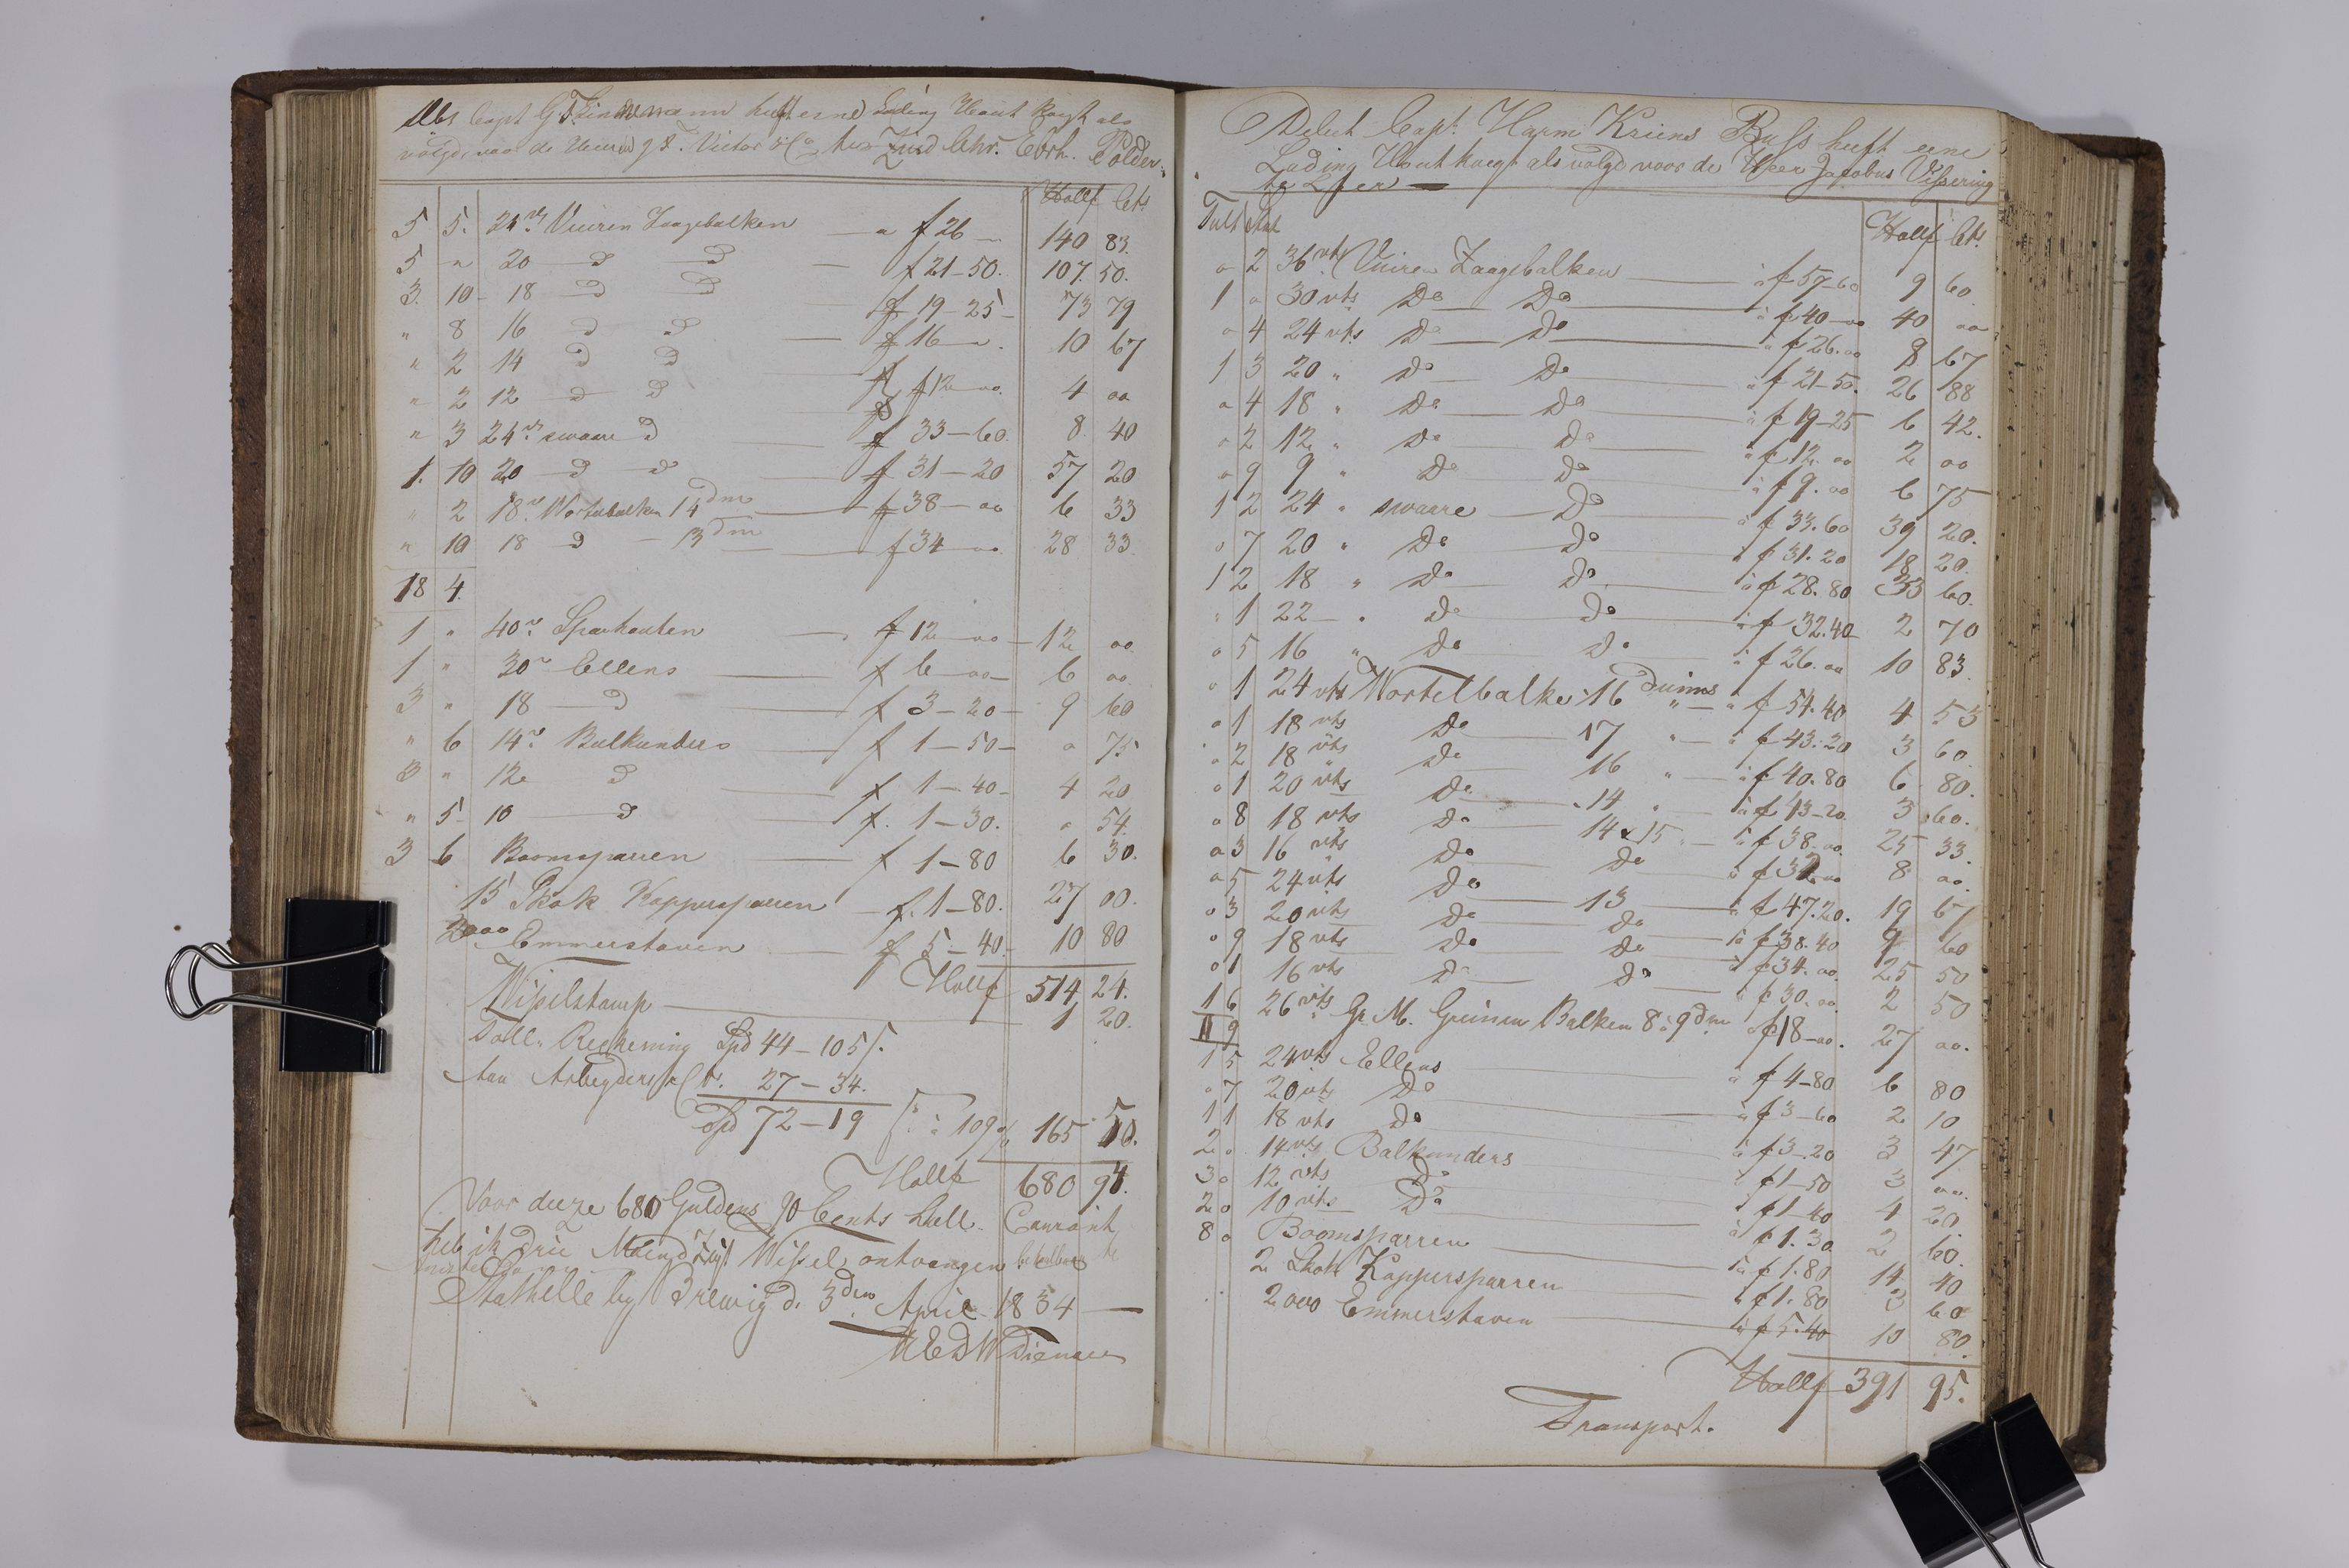 Capt G Zimmermann heeft eene Lading Hout kaagt als
volgd, voor de Heeren J. F. Victor & Co ter Zuid Chr. Eberh. Polder.
Hollf Cts
5 5. 24 vt Vuiren Zaagebalken a f 26 — 140 83.
5 " 20 D D f 21-50. 107. 50.
3. 10- 18 D D f 19-25- 73 79
" 8 16 D D f 16 — ". 10 67
" 2 14 D D f
" 2 12 D D f 12 — oo. 4 oo
" 3 24 vt swaare D f 33-60. 8. 40
1. 10 20 D D f 31-20 57 20
" 2 18 vt Wortelbalken 14 dm f 38-oo 6 33
" 10 18 D — 13 dm f 34 oo. 28 33.
18 4.
1 " 40 vt Sparhouten f 12-oo- 12 oo.
1 " 30 vt Ellens f 6-oo- 6 oo.
3 " 18 D f 3-20- 9 60
" 6 14 vt Balkunders f 1-50- o 75
3 " 12 D f 1-40- 4 20
" 5 10 D f. 1-30. o 54.
3 6 Boomsparren f 1-80 6 30.
15 Skok Kappersparren f. 1-80. 27 00.
2000 Emmerstaven f 5-40- 10 80
Hollf 514, 24.
Wisselstamp 1 20.
Toll. Rechening Spd 44-105/.
Aan Arbeyders 27-34.
Spd 72-19 à 109 165 50.
Hollf 680 94.
Voor deeze 680 Guldens 90 Cents Holl. Courant
heb ik drie Maend Wissel, ontvangen
Stathelle by Brewig d. 3den April 1834 —
Debet Capt. Harm Kriens Buss heeft eene
Lading Hout kaagt als volgt voor de Heer Jacobus Vissering
te Leer —
Tult Stk Hollf Cts.
o 2 36 vt Vuiren Zaagebalken à f 57-60 9 60.
1 o 30 vts Do Do à f 40-oo 40 oo
o 4 24 vts Do Do à f 26.oo 8 67
1 3 20 " Do Do à f 21-50. 26 88
o 4 18 " Do Do à f 19-25 6 42.
o 2 12 " Do Do à f 12.oo 2 oo
o 9 9 " Do Do à f 9.oo 6 75
1 2 24 " swaare Do à f 33.60 39 20.
o 7 20 " Do Do à f 31.20 18 20.
1 2 18 " Do Do à f 28.80 33 60.
" 1 22 " Do Do à f 32.40 2 70
o 5 16 " Do Do à f 26.oo 10 83.
o 1 24 vts Wortelbalke 16 duims " f 54.40 4 53
o 1 18 vts Do 17 " à f 43.20 3 60
o 2 18 vts Do 16 " à f 40.80 6 80.
o 1 20 vts Do 14 " à f 43-20. 3 60.
o 8 18 vts Do 14 à 15 " à f 38.oo. 25 33.
o 3 16 vts Do Do à f 32.oo 8 oo.
o 5 24 vts Do 13 à f 47.20. 19 67
o 3 20 vts Do Do à f 38.40 9 60
o 9 18 vts Do Do à f 34.oo. 25 50
o 1 16 vts Do Do à f 30.oo. 2 50
1 6 26 vts Gr. M. Greinen Balken 8 à 9 dm f 18-oo. 27 oo.
11 9
1 5 24 vts Ellens à f 4-80 6 80
o 7 20 vts Do à f 3-60 2 10
1 1 18 vts Do à f 3-20 3 47
2 o 14 vts Balkunders f 1-50 3 oo.
3 o 12 vts Do f 1-40 4 20
2 o 10 vts Do à f 1.30 2 60.
8 o Boomsparren à f 1.80 14 40
2 Skok Kappersparren à f 1.80 3 60
2000 Emmerstaven à f 5.40 10 80.
Hollf 391 95.
Transport.